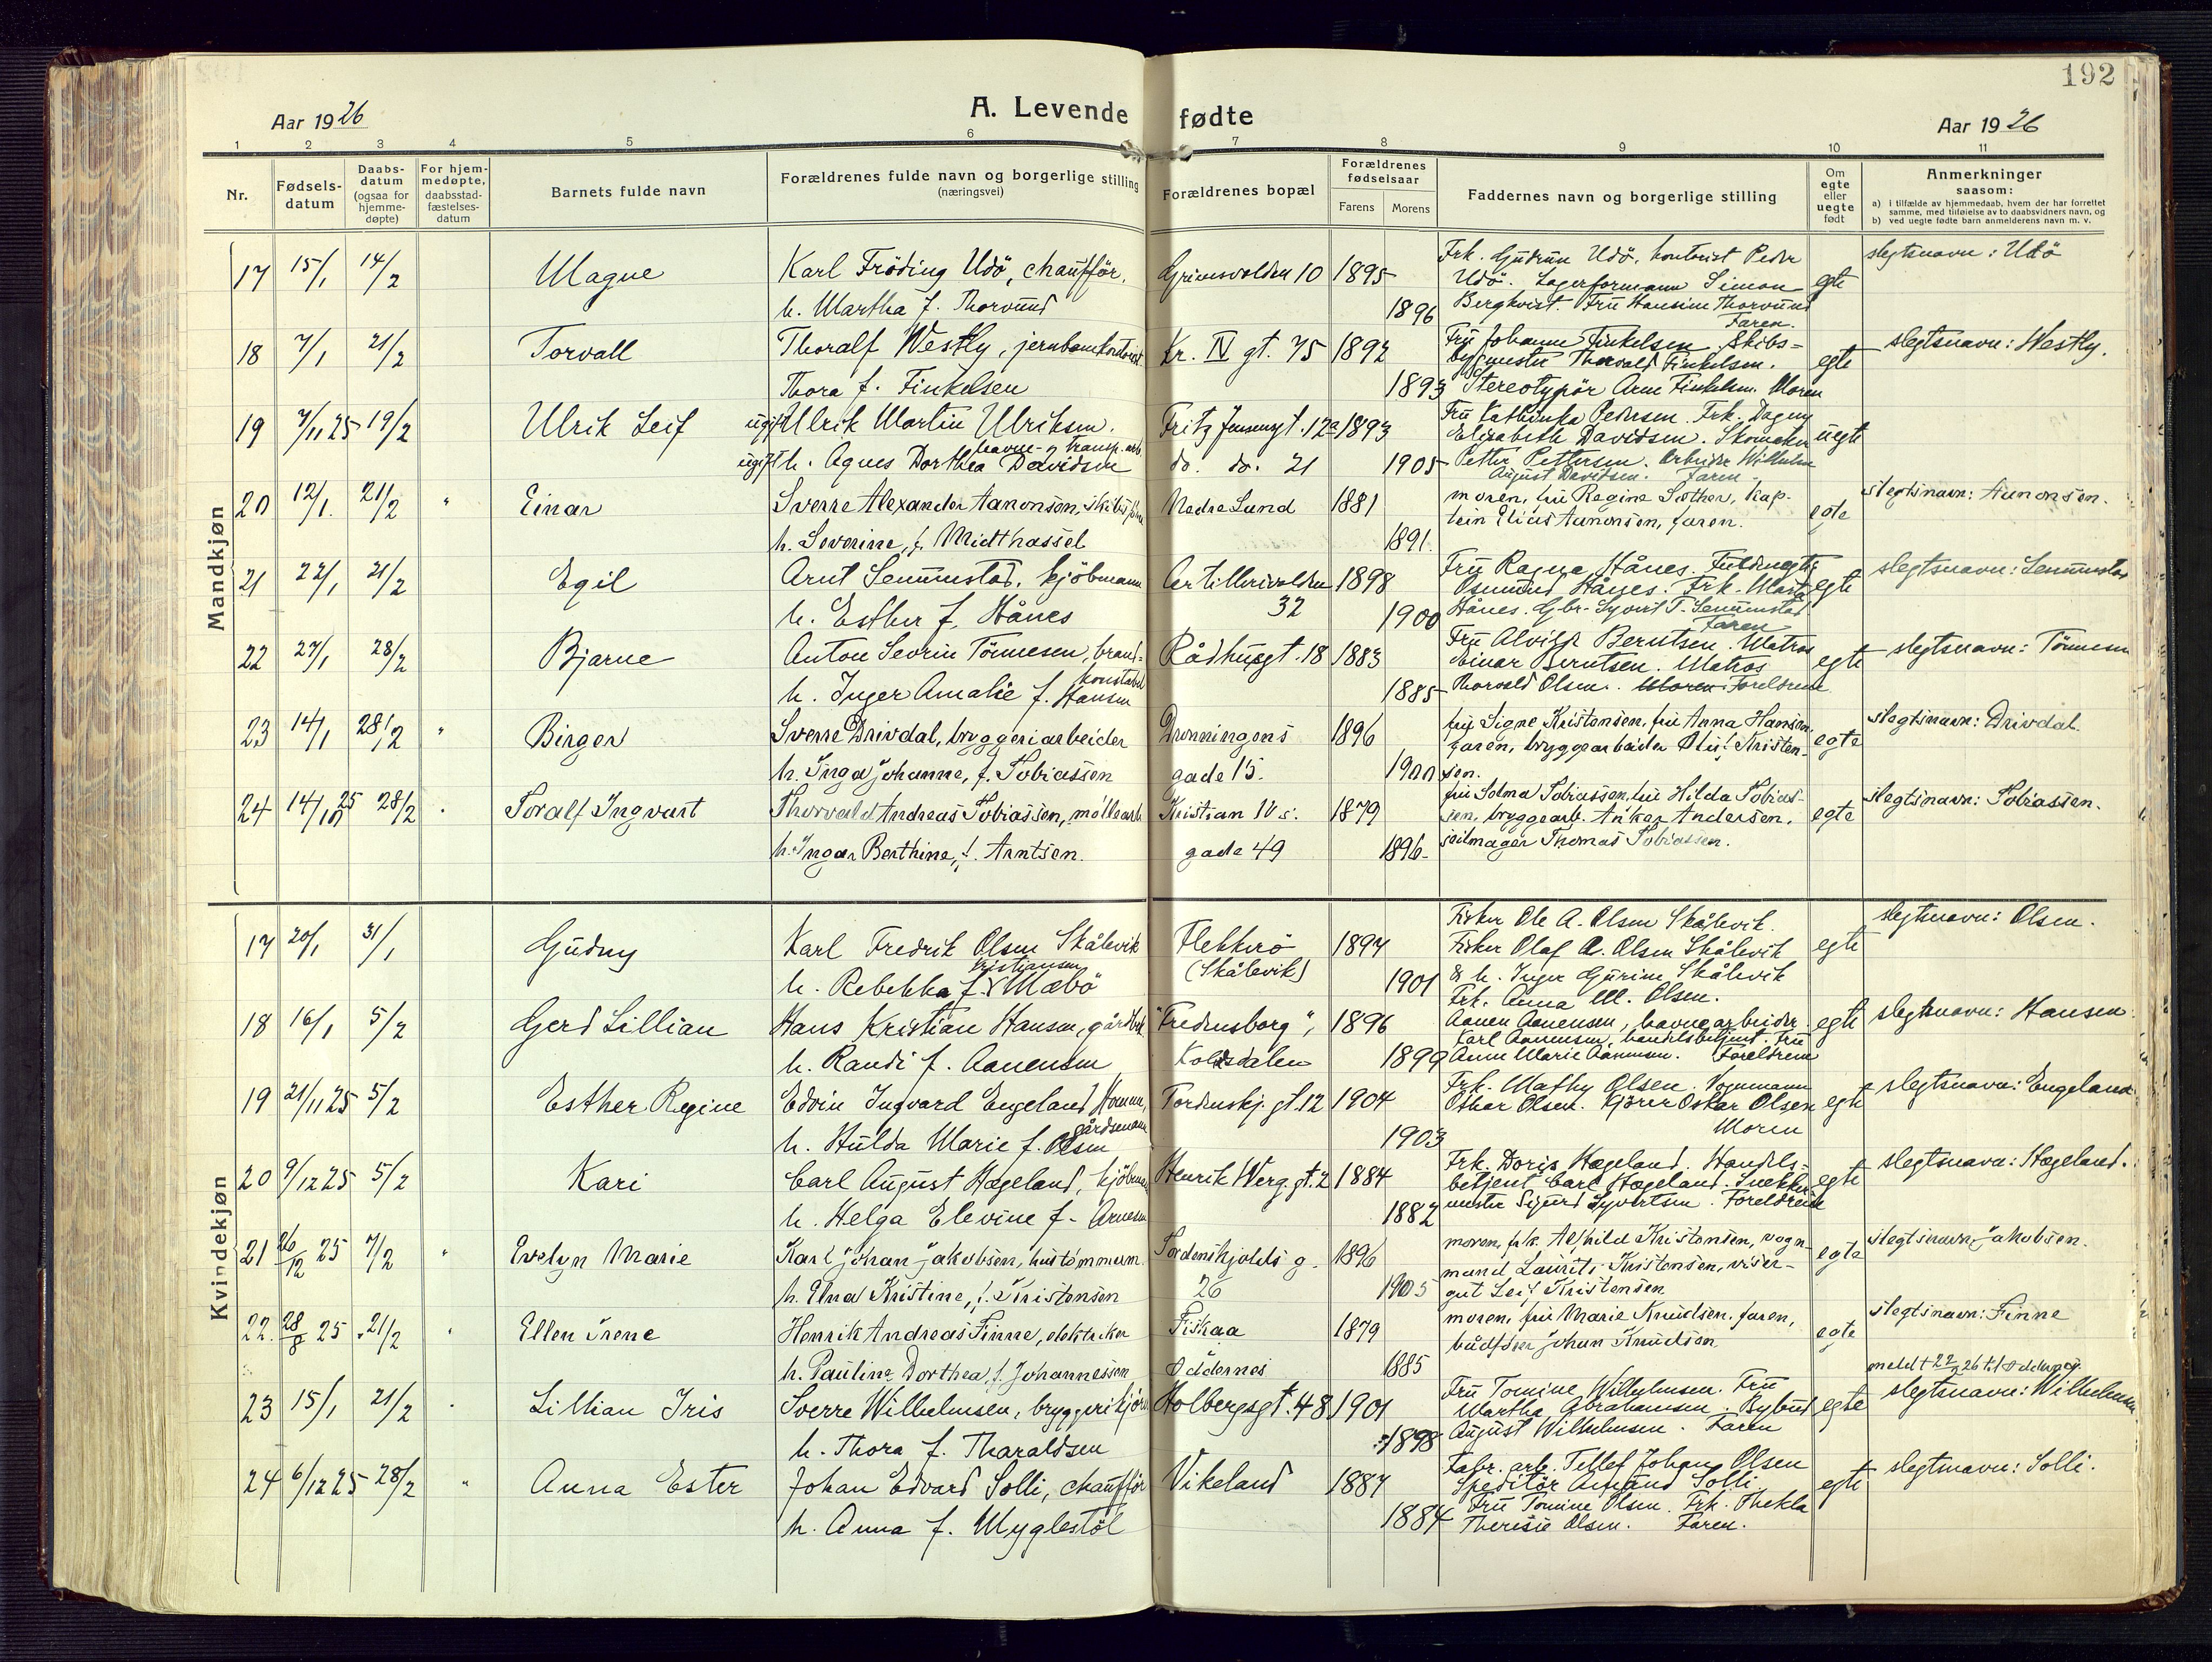 192
Aar 1926
A. Levende fødte
Aar 1926
1 2 3 4 5 6 7 8 9 10 11
Nr.
Fødsels-
datum
Daabs-
datum
(ogsaa for
hjemme-
døpte)
For hjem-
medøpte,
daabsstad-
fæstelses-
datum
Barnets fulde navn
Forældrenes fulde navn og borgerlige stilling
(næringsvei)
Forældrenes bopæl
Forældrenes
fødselsaar
Farens Morens
Faddernes navn og borgerlige stilling
Om
egte
eller
uegte
født
Anmerkninger
saasom:
a) i tilfælde av hjemmedaab, hvem der har forrettet
samme, med tilføielse av to daabsvidners navn, og
b) ved uegte fødte barn anmelderens navn m. v.
Mandkjøn
17 15/1 14/2 Magne
Karl Fröding Udö, chaufför,
h. Martha f. Thorvund
Grimsvolden 10 1895
1896
Frk. Gudrun Udö, kontorist Peder
Udö. Lagerformann Simon
Bergkvist. Fru Hansine Thorvund
Faren.
egte
slegtsnavn: Udö
18 7/1 21/2 Torvall
Thoralf Westly, jernbanekontorist
Thora f. Finkelsen
Kr. IV gt. 75 1892
1893
Fru Johanne Finkelsen. Skibs-
bygmester Thorvald Finkelsen.
Stereotypör Arne Finkelsen. Moren
egte
slegtsnavn: Westly.
19 7/11 25 19/2 Ulrik Leif
ugift Ulrik Martin Ulriksen.
havne- og transp. arb.
ugift h. Agnes Dorthea Davidsen
Fritz Jensensgt. 12a 1893
do. do. 21 1905
Fru Kathinka Pedersen. Frk. Dagny
Elisabeth Davidsen. Skomaker
Petter Pettersen. Arbeider Wilhelm
August Davidsen. Faren.
uegte
20 12/1. 21/2 " Einar
Sverre Alexander Aanonsen, skibsförer
h. Severine, f. Midthassel
Nedre Lund 1881
1891.
moren, fru Regine Sother, kap-
tein Elias Aanonsen, faren.
egte
slegtsnavn: Aanonsen.
21 22/1 21/2 Egil
Arnt Senumstad, kjöbmann
h. Esther f. Hånes
Artillerivolden 1898
32 1900
Fru Ragna Hånes. Fuldmegtig
Osmund Hånes. Frk. Marta
Hånes. Gbr. Syvert T. Senumstad
Faren
egte
slegtsnavn: Senumstad
22 27/1 28/2 Bjarne
Anton Sevrin Tönnesen, brand-
konstabel
h. Inger Amalie f. Hansen
Rådhusgt. 18 1883
1885
Fru Alvilde Berntsen. Matros
Einar Berntsen. Matros
Thorvald Olsen. Moren Foreldrene
egte
slegtsnavn: Tönnesen
23 14/1 28/2 " Birger
Sverre Drivdal, bryggeriarbeider
h. Inga Johanne, f. Tobiassen
Dronningens 1896
gade 15. 1900
fru Signe Kristensen, fru Anna Hansen,
faren, bryggearbeider Olaf Kristen-
sen.
egte
slegtsnavn: Drivdal.
24 14/10 25 28/2 . Toralf Ingvart
Thorvald Andreas Tobiassen, möllearb.
h. Ingar Berthine, f. Arntsen.
Kristian IV s. 1879
gade 49 1896.
fru Selma Tobiassen, fru Hilda Tobias-
sen, bryggearb. Anker Andersen,
seilmager Thomas Tobiassen.
egte
slegtsnavn: Tobiassen.
Kvindekjøn
17 20/1 31/1 Gudny
Karl Fredrik Olsen Skålevik
Kristiansen
h. Rebekka f. Mæbö
Flekkerö 1897
(Skålevik) 1901
Fisker Ole A. Olsen Skålevik.
Fisker Olaf A. Olsen Skålevik
& h. Inger Gurine Skålevik
Frk. Anna M. Olsen.
egte
slegtsnavn: Olsen.
18 16/1 5/2 Gerd Lillian
Hans Kristian Hansen, gårdbr.
h. Randi f. Aanensen
"Fredensborg", 1896
Koldsdalen 1899
Aanen Aanensen, havnearbeider
Karl Aanensen, handelsbetjent. Fru
Anne Marie Aanensen. Foreldrene
egte
slegtsnavn: Hansen.
19 21/11 25 5/2 Esther Regine
Edvin Ingvard Engeland Homme,
gårdsmann
h. Hulda Marie f. Olsen
Tordenskj. gt. 12 1904
1903
Frk. Mathy Olsen. Vognmann
Oskar Olsen. Kjörer Oskar Olsen
Moren
egte
slegtsnavn: Engeland.
20 9/12 25 5/2 Kari
Carl August Hægeland, kjöbmann
h. Helga Elevine f. Arnesen
Henrik Werg. gt. 2 1884
1882
Frk. Doris Hægeland. Handels-
betjent Carl Hægeland. Snekker-
mester Sigurd Syvertsen. Foreldrene
egte
slegtsnavn: Hægeland.
21 26/12 25 7/2 " Evelyn Marie
Karl Johan Jakobsen, hustömmerm.
h. Elna Kristine, f. Kristensen
Tordenskjolds g. 1896
26 1905
moren, frk. Alfhild Kristensen, vogn-
mand Laurits Kristensen, viser-
gut Leif Kristensen
egte
slegtsnavn: Jakobsen.
22. 28/8 25 21/2 " Ellen Irene
Henrik Andreas Finne, elektriker
h. Pauline Dorthea, f. Johannessen
Fiskaa 1879
Oddernes 1885
moren, fru Marie Knudsen, faren,
bådfører Johan Knudsen
egte
slegtsnavn: Finne
meldt 22/2 26 til Oddernes.
23 15/1 21/2 . Lillian Iris
Sverre Wilhelmsen, bryggerikjörer
h. Thora f. Tharaldsen
Holbergsgt. 48 1901
1898
Fru Tomine Wilhelmsen. Fru
Martha Abrahamsen. Bybud
August Wilhelmsen. Faren
egte
slegtsnavn: Wilhelmsen
24 6/12 25 28/2 " Anna Ester
Johan Edvard Solli, chaufför
h. Anna f. Myglestöl
Vikeland 1887
1884
Fabr. arb. Tellef Johan Olsen
Speditör Amund Solli
Fru Tomine Olsen. Frk. Thekla
Theresie Olsen. Faren.
egte
slegtsnavn: Solli.